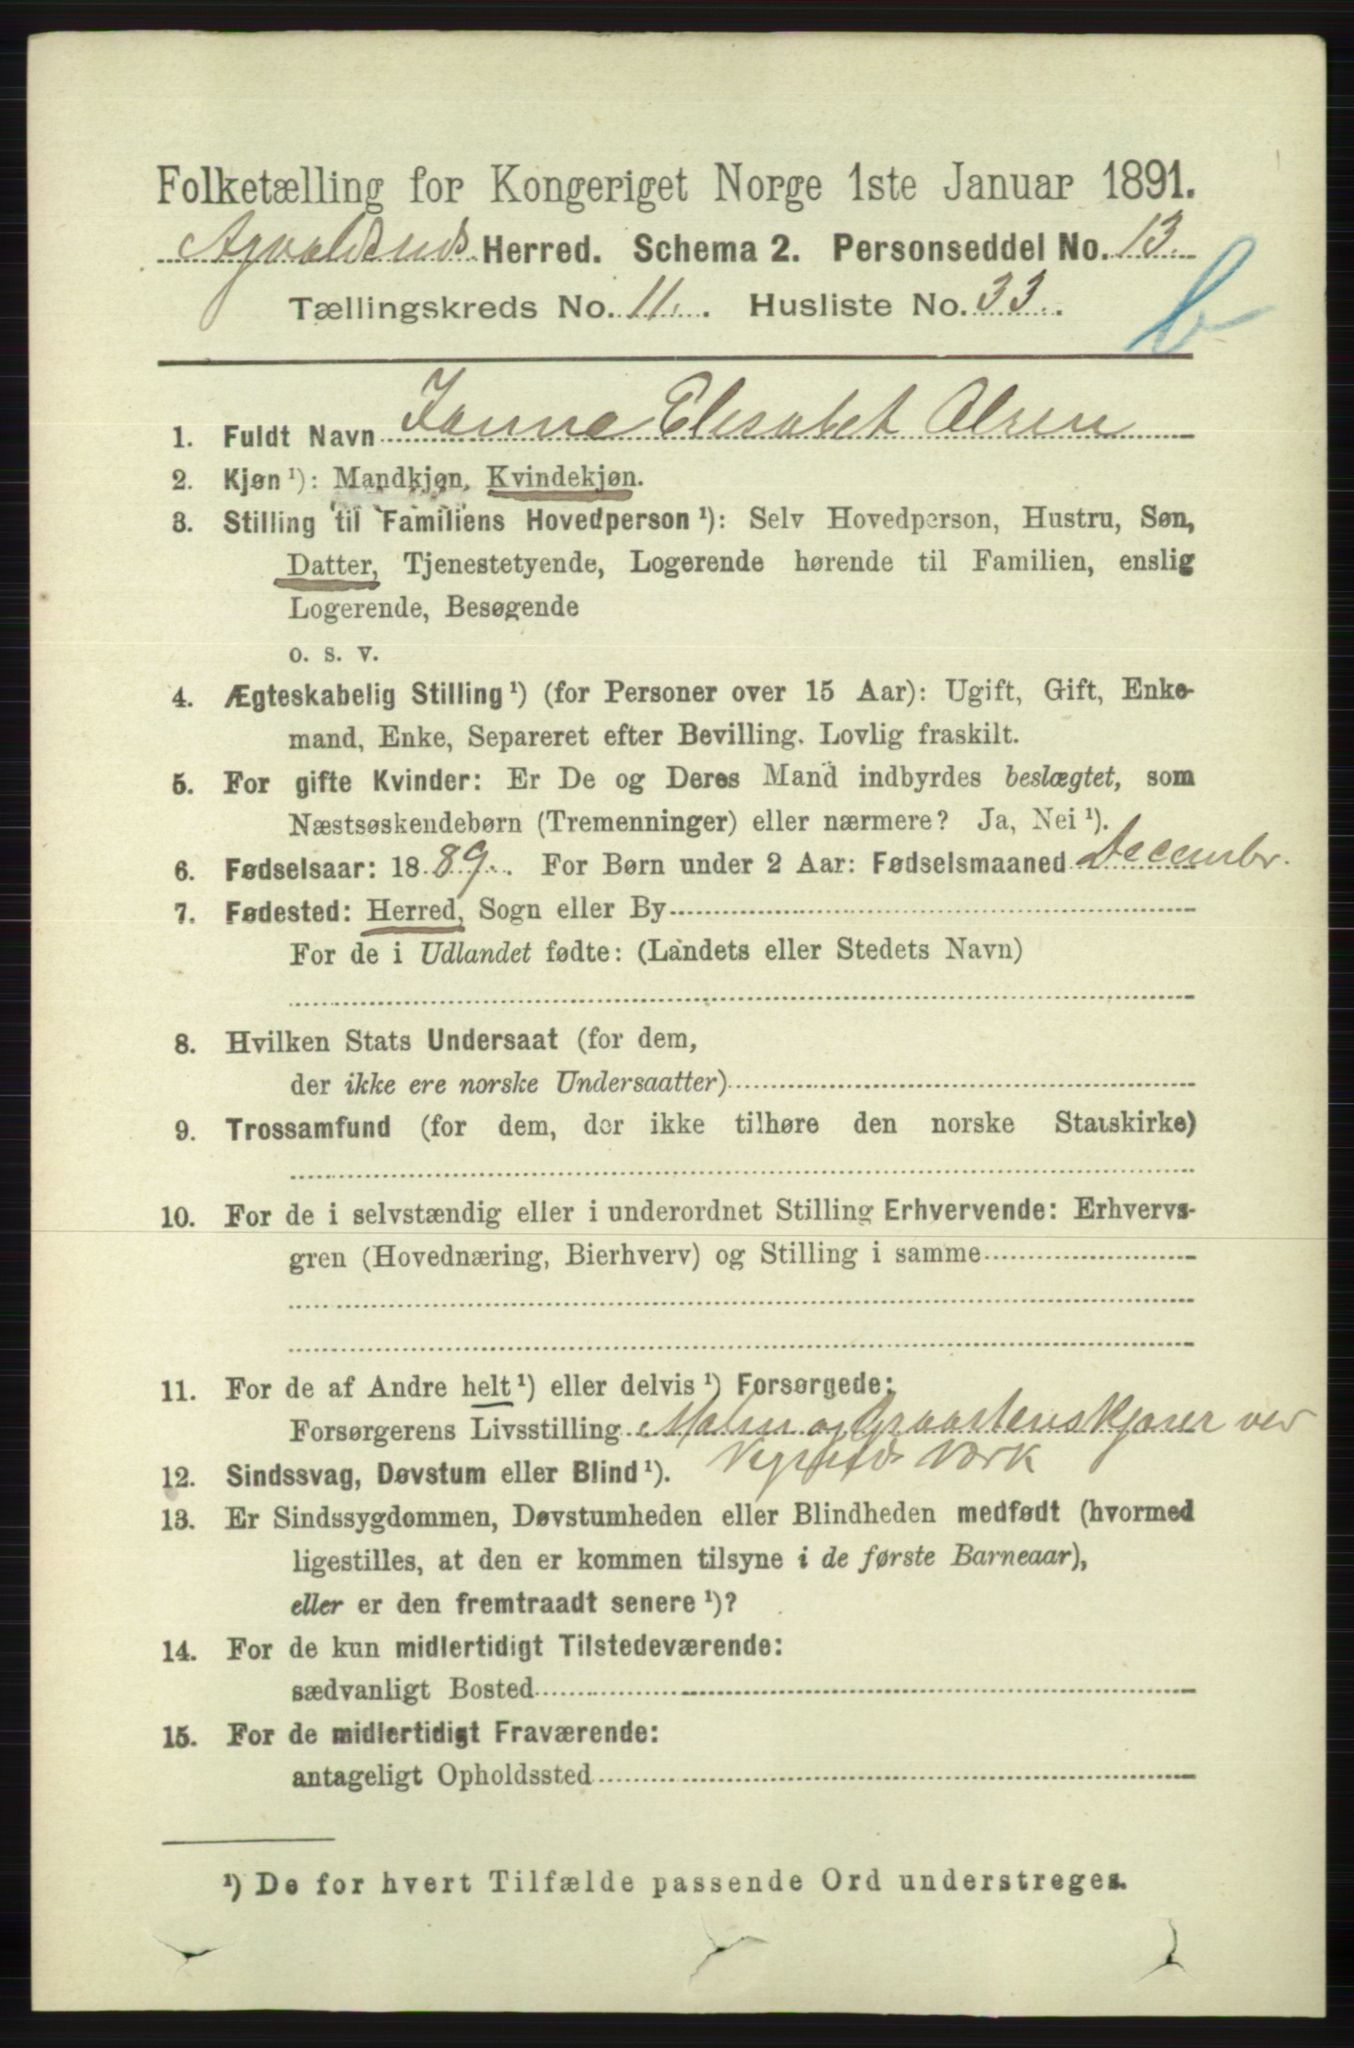 Folketælling for Kongeriget Norge 1ste Januar 1891.
Herred. Schema 2. Personseddel No. 13.
Tællingskreds No. 11. Husliste No. 33.
b
1. Fuldt Navn Janna Elisabet Olsen
2. Kjøn ¹): Mandkjøn, Kvindekjøn.
3. Stilling til Familiens Hovedperson ¹): Selv Hovedperson, Hustru, Søn,
Datter, Tjenestetyende, Logerende hørende til Familien, enslig
Logerende, Besøgende
o. s. v.
4. Ægteskabelig Stilling ¹) (for Personer over 15 Aar): Ugift, Gift, Enke-
mand, Enke, Separeret efter Bevilling. Lovlig fraskilt.
5. For gifte Kvinder: Er De og Deres Mand indbyrdes beslægtet, som
Næstsøskendebørn (Tremenninger) eller nærmere? Ja, Nei ¹).
6. Fødselsaar: 1889. For Børn under 2 Aar: Fødselsmaaned Decembr.
7. Fødested: Herred, Sogn eller By
For de i Udlandet fødte: (Landets eller Stedets Navn)
8. Hvilken Stats Undersaat (for dem,
der ikke ere norske Undersaatter)
9. Trossamfund (for dem, der ikke tilhøre den norske Statskirke)
10. For de i selvstændig eller i underordnet Stilling Erhvervende: Erhvervs-
gren (Hovednæring, Bierhverv) og Stilling i samme
11. For de af Andre helt ¹) eller delvis ¹) Forsørgede:
Forsørgerens Livsstilling Malm og Graastenskjører ved
Værk
12. Sindssvag, Døvstum eller Blind ¹).
13. Er Sindssygdommen, Døvstumheden eller Blindheden medfødt (hvormed
ligestilles, at den er kommen tilsyne i de første Barneaar),
eller er den fremtraadt senere ¹)?
14. For de kun midlertidigt Tilstedeværende:
sædvanligt Bosted
15. For de midlertidigt Fraværende:
antageligt Opholdssted
¹) De for hvert Tilfælde passende Ord understreges.